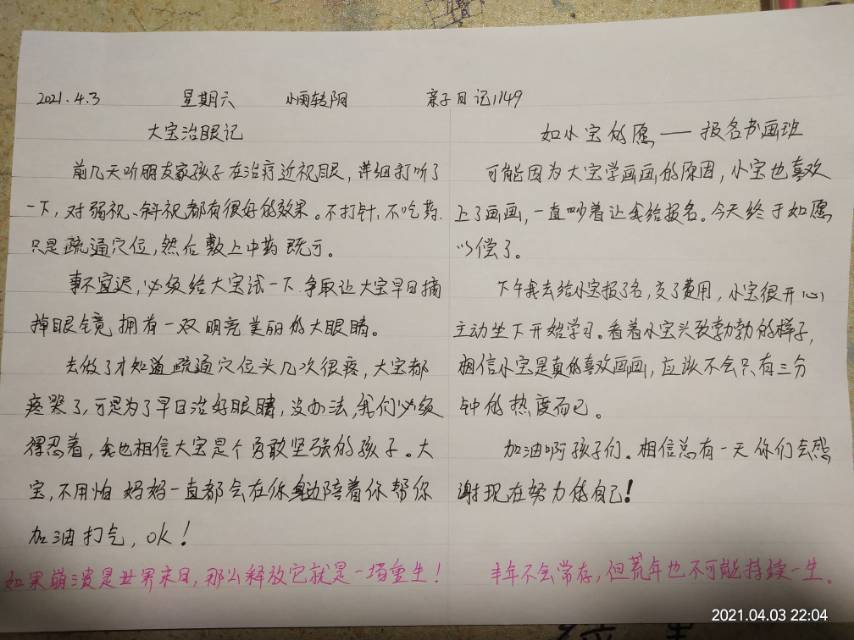 2021.4.3 星期六 小雨转阴 亲子日记1149
大宝治眼记
前几天听朋友家孩子在治疗近视眼，详细打听了
一下，对弱视、斜视都有很好的效果。不打针，不吃药，
只是疏通穴位，然后敷上中药既可。
事不宜迟，必须给大宝试一下，争取让大宝早日摘
掉眼镜，拥有一双明亮美丽的大眼睛。
去做了才知道疏通穴位头几次很疼，大宝都
疼哭了，可是为了早日治好眼睛，没办法，我们必须
得忍着，我也相信大宝是个勇敢坚强的孩子。大
宝，不用怕 妈妈一直都会在你身边陪着你帮你
加油打气，OK！
如果崩溃是世界末日，那么释放它就是一场重生！
如小宝的愿——报名书画班
可能因为大宝学画画的原因，小宝也喜欢
上了画画，一直吵着让我给报名。今天终于如愿
以偿了。
下午我去给小宝报了名，交了费用，小宝很开心，
主动坐下开始学习。看着小宝兴致勃勃的样子，
相信小宝是真的喜欢画画，应该不会只有三分
钟的热度而已。
加油啊孩子们。相信总有一天你们会感
谢现在努力的自己！
丰年不会常存，但荒年也不可能持续一生。
2021.04.03 22:04